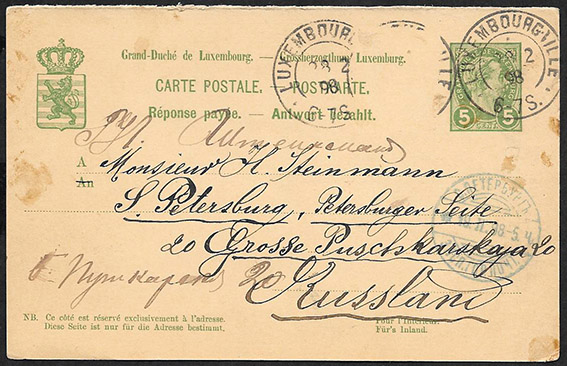 Grand-Duché de Luxembourg. — Grossherzogthum Luxemburg.
CARTE POSTALE. — POSTKARTE.
Réponse payée. — Antwort bezahlt.
LUXEMBOURG
28 2
98
6-7S.
LUXEMBOURG-VILLE
28 2
98
6-7S.
5 5
A
An
Monsieur H. Steinmann
S. Petersburg, Petersburger-Seite
20 Grosse Puschkarskaja 20
Б Пушкарская 20
Russland
NB. Ce côté est réservé exclusivement à l'adresse.
Diese Seite ist nur für die Adresse bestimmt.
Pour l'intérieur.
Für's Inland.